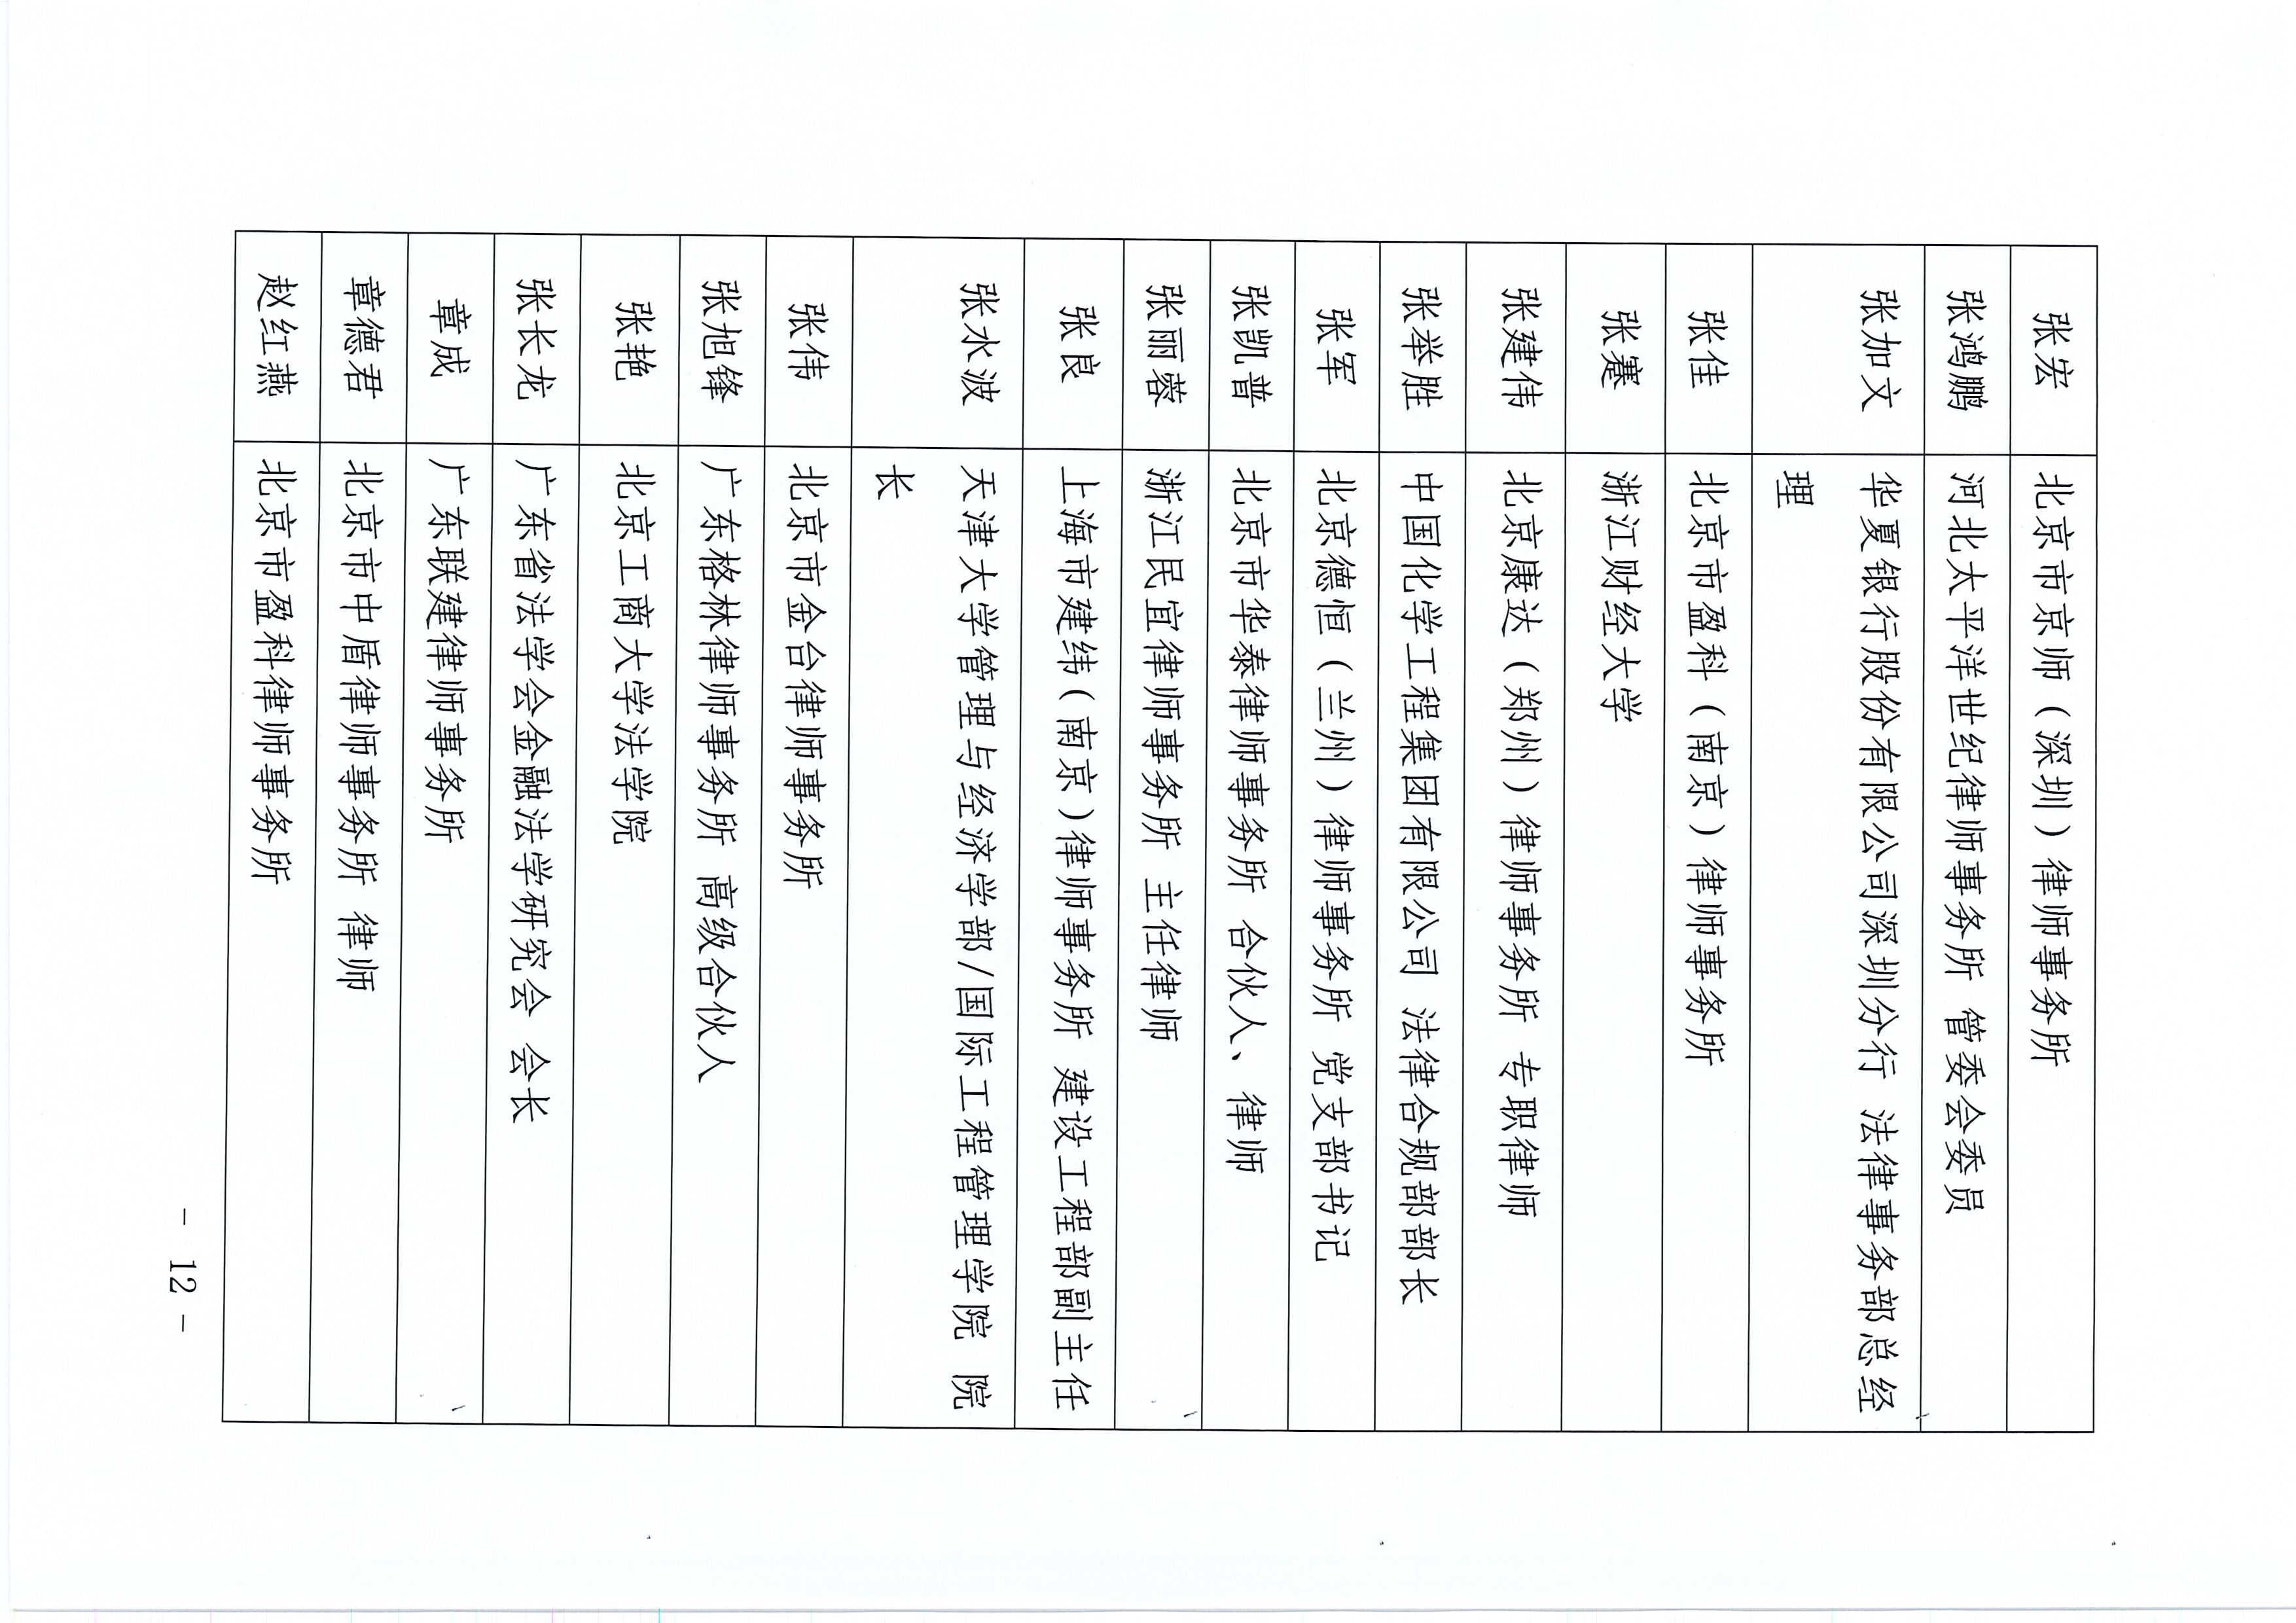 张宏 北京市京师（深圳）律师事务所
张鸿鹏 河北太平洋世纪律师事务所 管委会委员
张加文 华夏银行股份有限公司深圳分行 法律事务部总经
理
张佳 北京市盈科（南京）律师事务所
张蹇 浙江财经大学
张建伟 北京康达（郑州）律师事务所 专职律师
张举胜 中国化学工程集团有限公司 法律合规部部长
张军 北京德恒（兰州）律师事务所 党支部书记
张凯普 北京市华泰律师事务所 合伙人、律师
张丽蓉 浙江民宜律师事务所 主任律师
张良 上海市建纬（南京）律师事务所 建设工程部副主任
张水波 天津大学管理与经济学部/国际工程管理学院 院
长
张伟 北京市金台律师事务所
张旭锋 广东格林律师事务所 高级合伙人
张艳 北京工商大学法学院
张长龙 广东省法学会金融法学研究会 会长
章成 广东联建律师事务所
章德君 北京市中盾律师事务所 律师
赵红燕 北京市盈科律师事务所
- 12 -